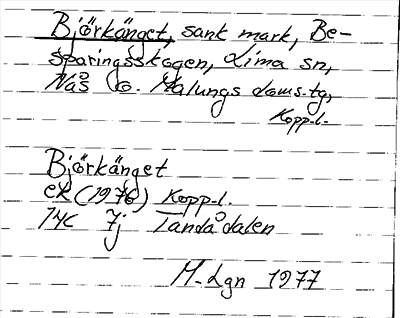 Björkänget, sank mark, Be-
sparingsskogen, Lima sn,
Nås o. Malungs doms.tg,
Kopp.l.
Björkänget
ek (1976) Kopp.l.
14c 7j Tandådalen
M. Lgn 1977